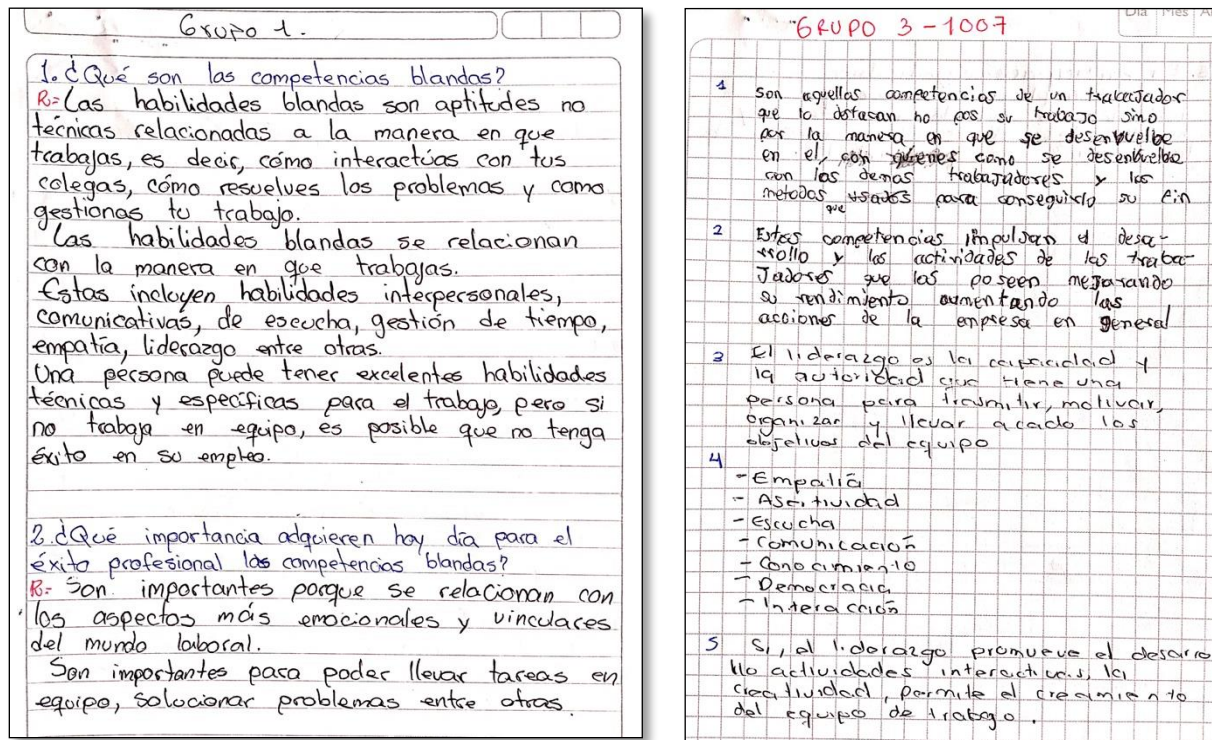 Grupo 1.
1. ¿Qué son las competencias blandas?
R= Las habilidades blandas son aptitudes no
técnicas relacionadas a la manera en que
trabajas, es decir, cómo interactúas con tus
colegas, cómo resuelves los problemas y como
gestionas tu trabajo.
Las habilidades blandas se relacionan
con la manera en que trabajas.
Estas incluyen habilidades interpersonales,
comunicativas, de escucha, gestión de tiempo,
empatía, liderazgo entre otras.
Una persona puede tener excelentes habilidades
técnicas y específicas para el trabajo, pero si
no trabaja en equipo, es posible que no tenga
éxito en su empleo.
2. ¿Qué importancia adquieren hoy día para el
éxito profesional las competencias blandas?
R= Son importantes porque se relacionan con
los aspectos más emocionales y vinculares
del mundo laboral.
Son importantes para poder llevar tareas en
equipo, solocionar problemas entre otras.
Dia Mes
GRUPO 3-1007
1 Son aquellas competencias de un trabajador
que lo dstacan no pos su trabajo sino
por la manera en que se desenvuelbe
en el, con quienes como se desenvuelbe
con los demas trabajadores y los
metodos que usados para conseguirlo su fin
2 Estas competencias impulsan el desa-
rrollo y las actividades de los traba-
Jadores que las poseen mejorando
su rendimiento aumentando las
acciones de la empresa en general
3 El liderazgo es la capacidad y
la autoridad que tiene una
persona para trasmitir, motivar,
organizar y llevar acado los
objetivos del equipo
4
- Empatía
- Asertividad
- Escucha
- Comunicación
- Conocimiento
- Democracia
- Interacción
5 Si, al liderazgo promueve el desarro
llo actividades interactivas, la
creatividad, permite el crecimiento
del equipo de trabajo.